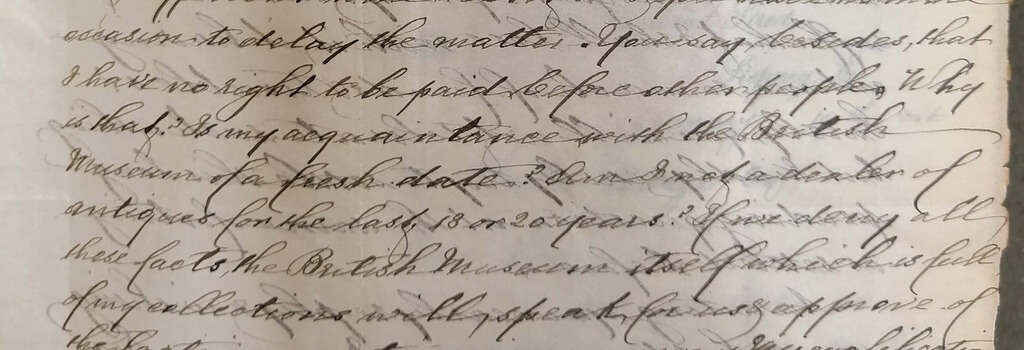 occasion to delay the matter. You say, besides, that
I have no right to be paid before other people. Why
is that? Is my acquaintance with the British
Museum of a fresh date? Am I not a dealer of
antiques for the last 18 or 20 years? If we deny all
these facts, the British Museum itself which is full
of my collections will speak for us & approve of